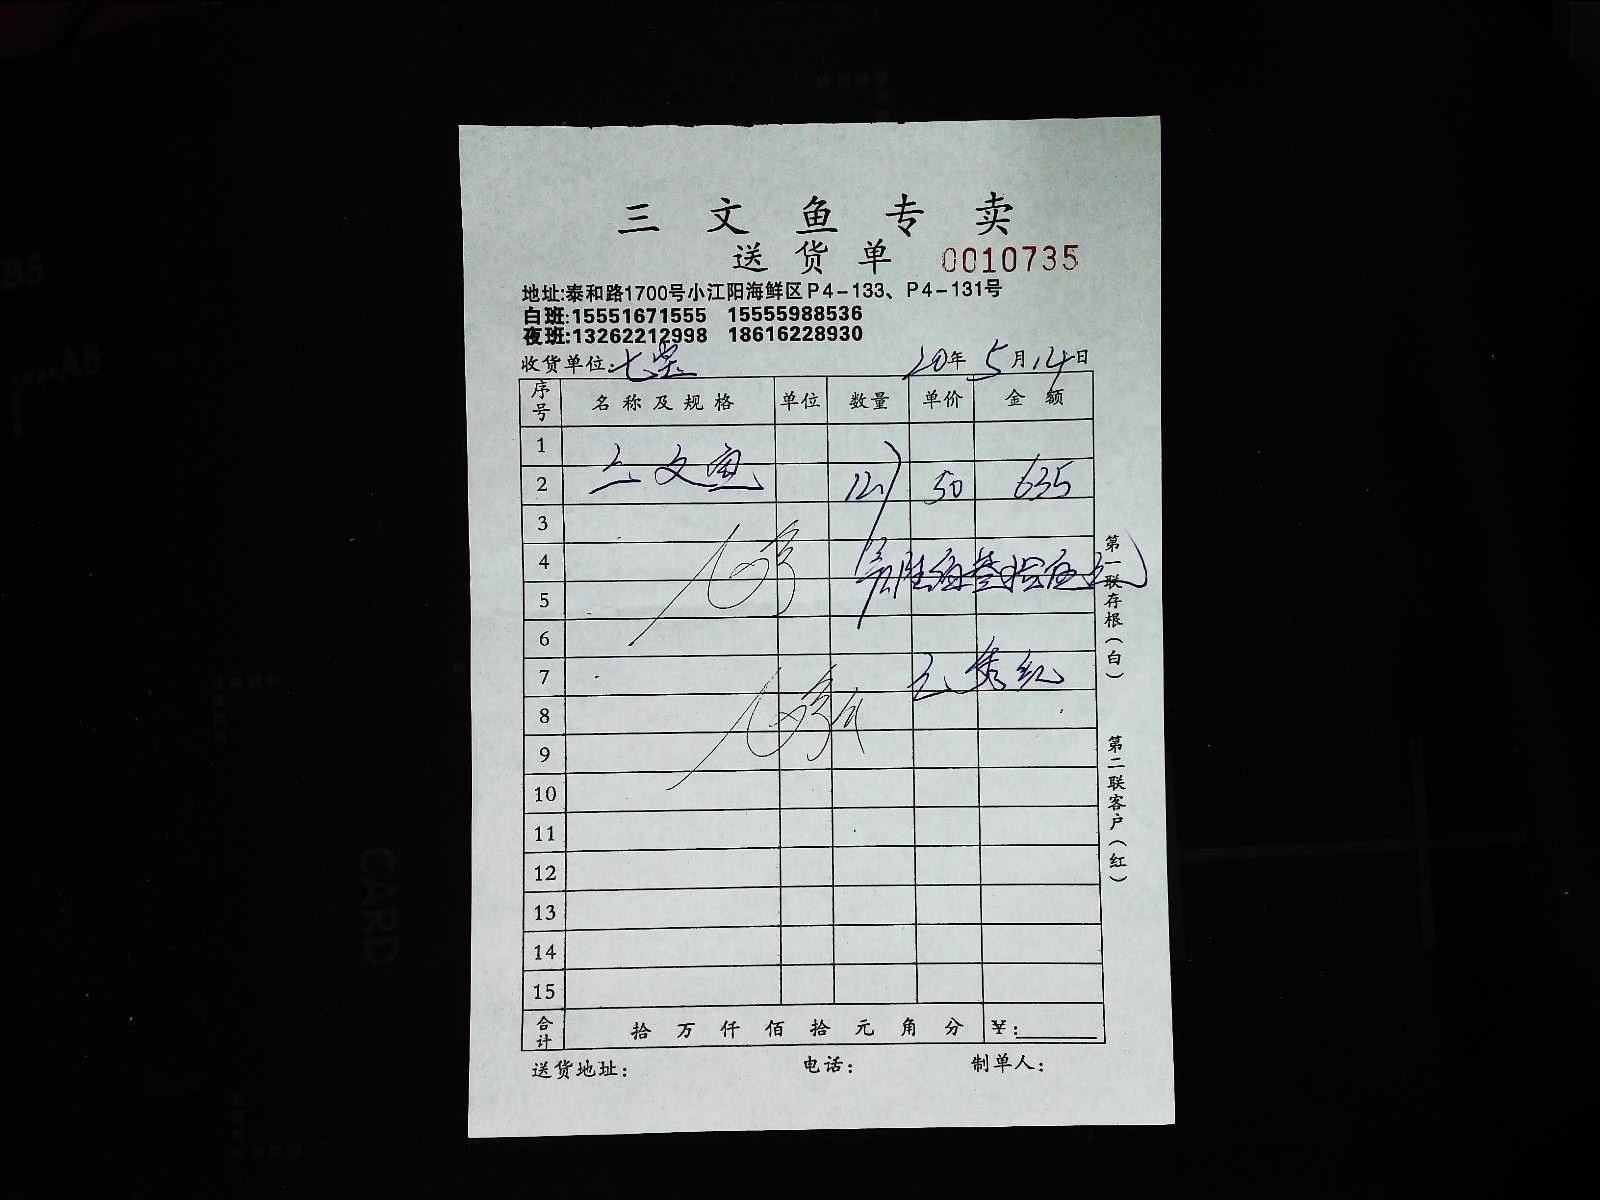 三文鱼专卖
送货单 0010735
地址:泰和路1700号小江阳海鲜区P4-133、P4-131号
白班:15551671555 15555988536
夜班:13262212998 18616228930
收货单位: 20年5月14日
序号 名称及规格 单位 数量 单价 金额
1
2 三文鱼 50 635
3
4
5
6
7
8
9
10
11
12
13
14
15
合计 拾万仟佰拾元角分 ¥:
送货地址: 电话: 制单人:
第一联存根(白)
第二联客户(红)